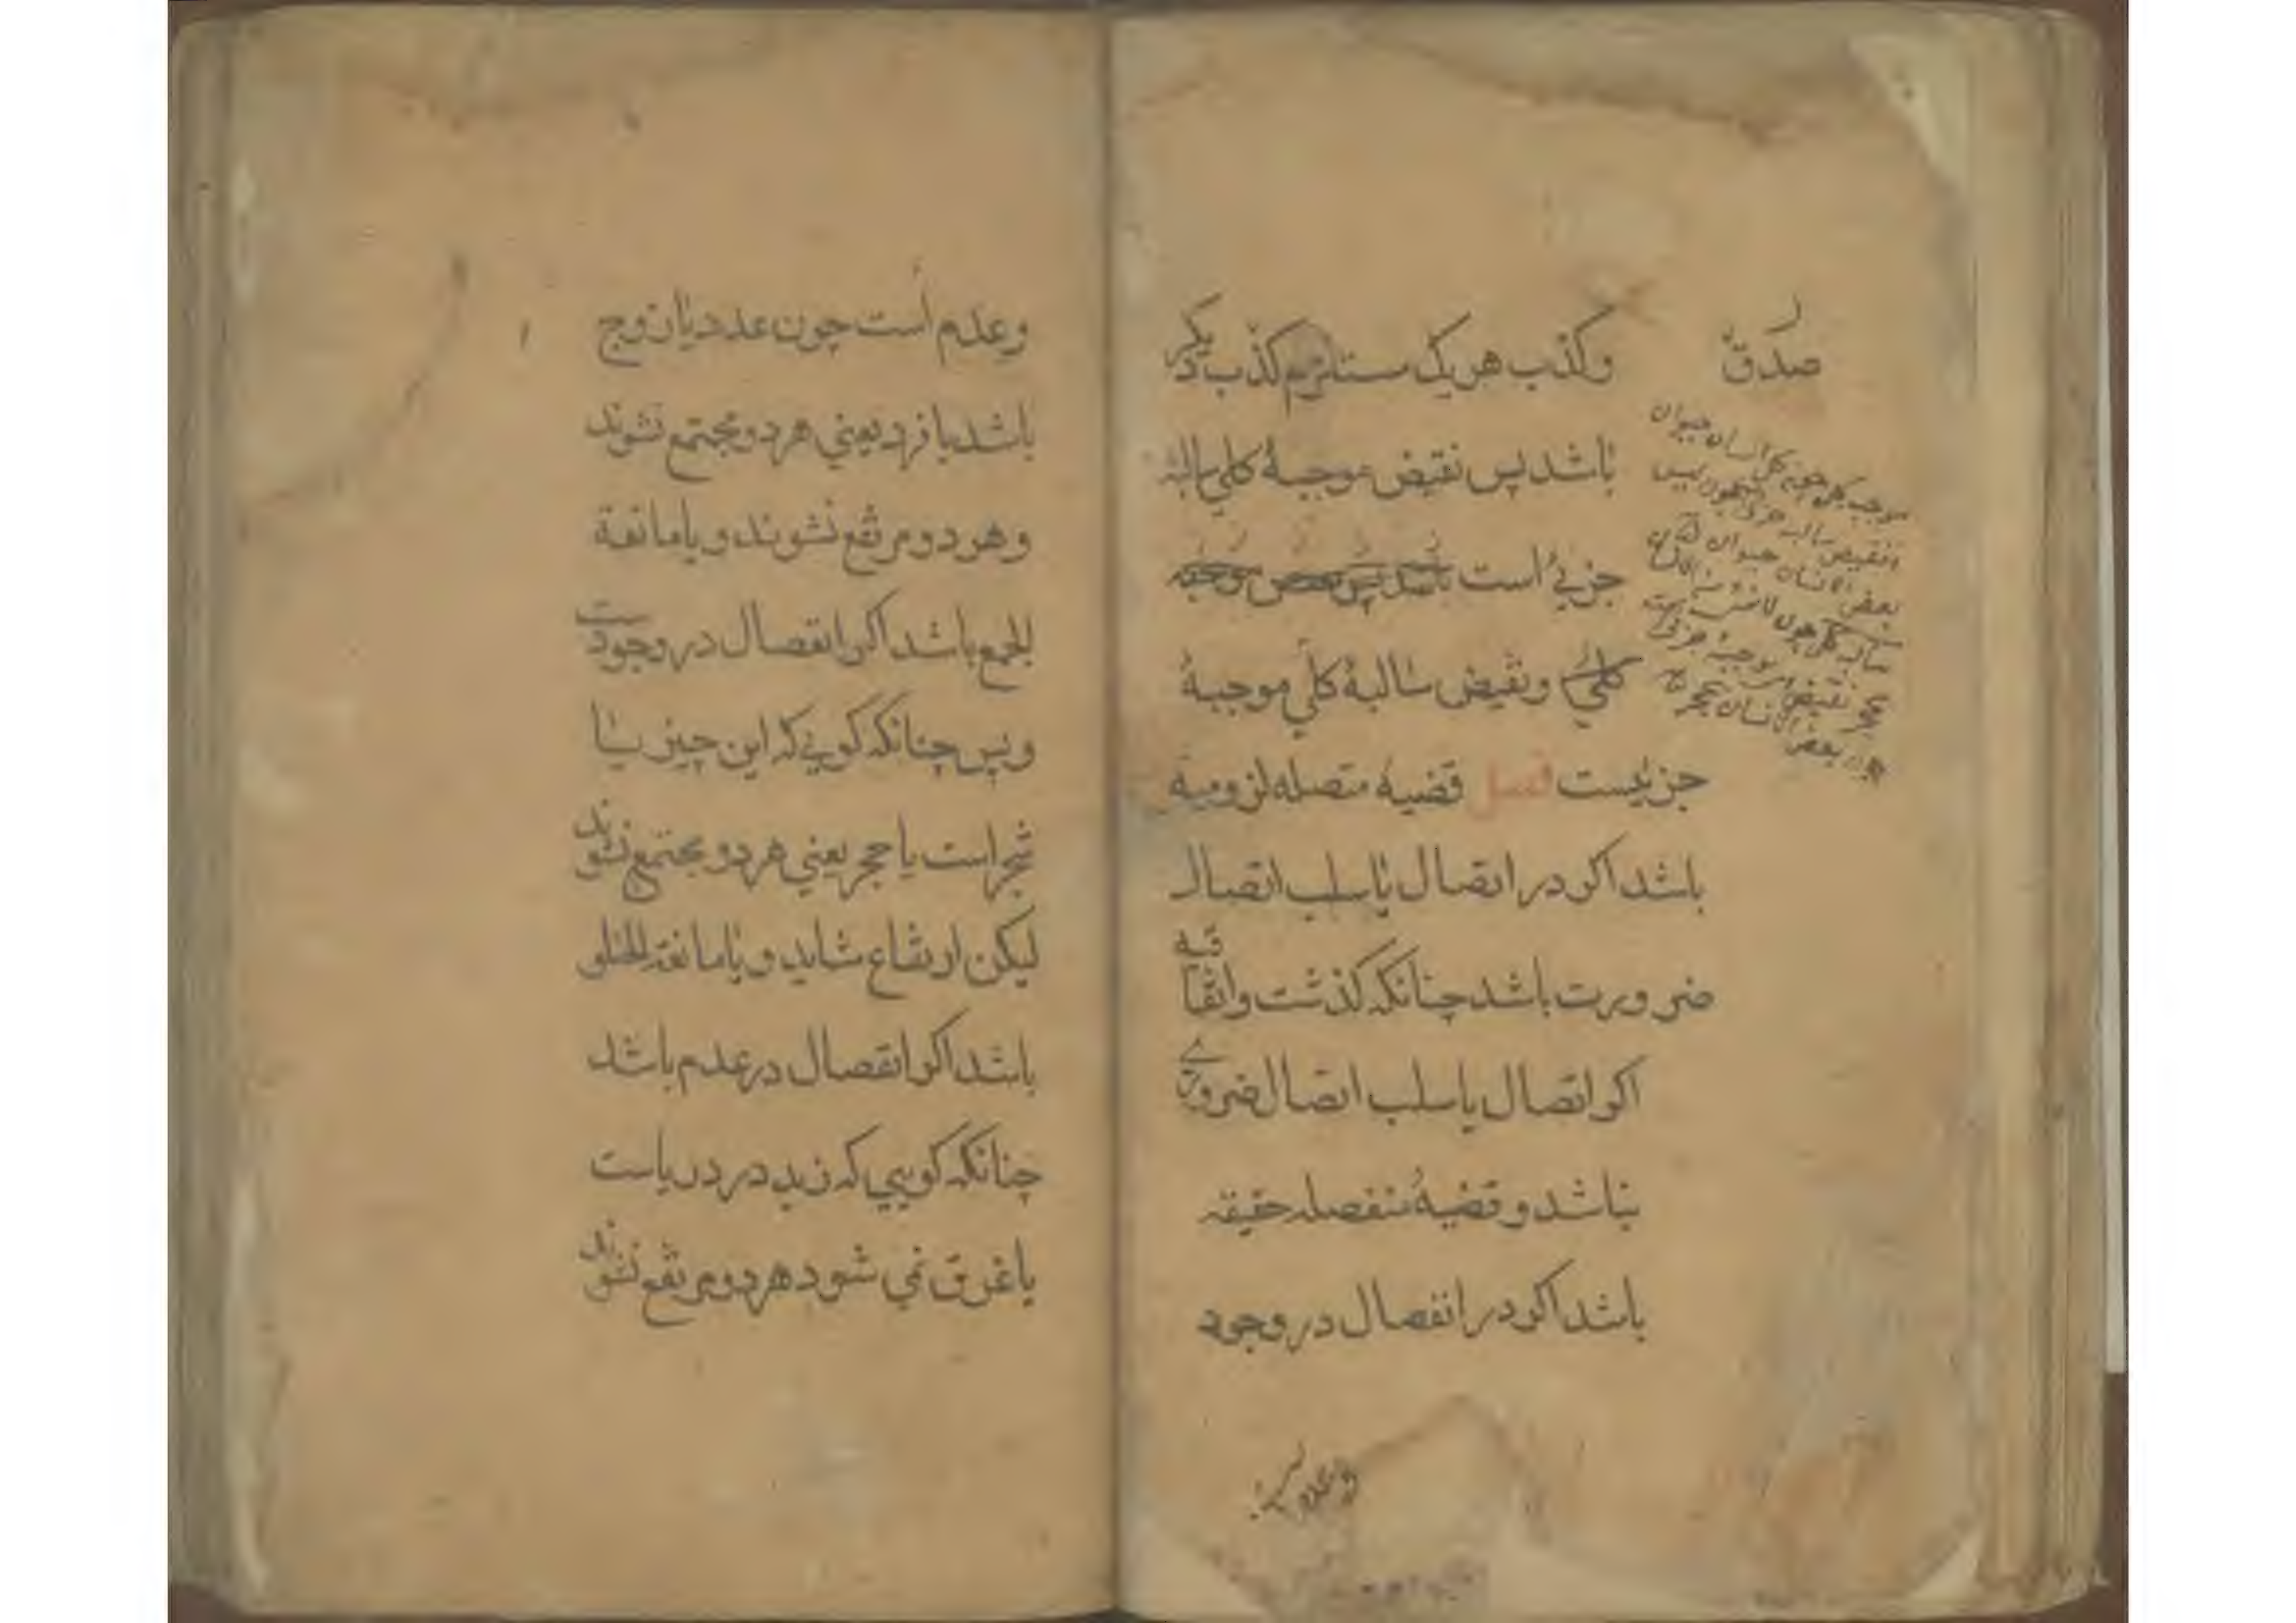 وکذب هریک مستلزم کذب دیگر
صدق
باشد پس نقیض موجبهٔ کلی سالبهٔ
جزئی است باشد پس نقیض موجبه
کلی ونقیض سالبهٔ کلی موجبهٔ
جزئیست فصل قضیهٔ متصله لزومیه
باشد اکر در اتصال یا سلب اتصال
ضرورت باشد چنانکه کذشت واتفاقیه
اکر اتصال یا سلب اتصال ضروری
نباشد و قضیهٔ منفصله حقیقه
باشد اکر در انفصال در وجود
موجب کلی چون کل انسان حیوان
نقیض سالبه جزئی چون لیس
بعض الانسان حیوان
سالبه کلی چون لا شئ من الانسان
بحجر نقیض است موجبهٔ جزئی است
بعض الانسان حجر
وعدم است
وعدم است چون عدد یا زوج
باشد یا فرد یعنی هر دو مجتمع نشوند
و هر دو مرتفع نشوند و یا مانعة
الجمع باشد اکر انفصال در وجودست
وپس چنانکه کویی که این چیز یا
شجر است یا حجر یعنی هر دو مجتمع نشوند
لیکن ارتفاع شاید و یا مانعة الخلو
باشد اکر انفصال در عدم باشد
چنانکه کویی که زید در دریاست
یا غرق نمی شود هر دو مرتفع نشوند